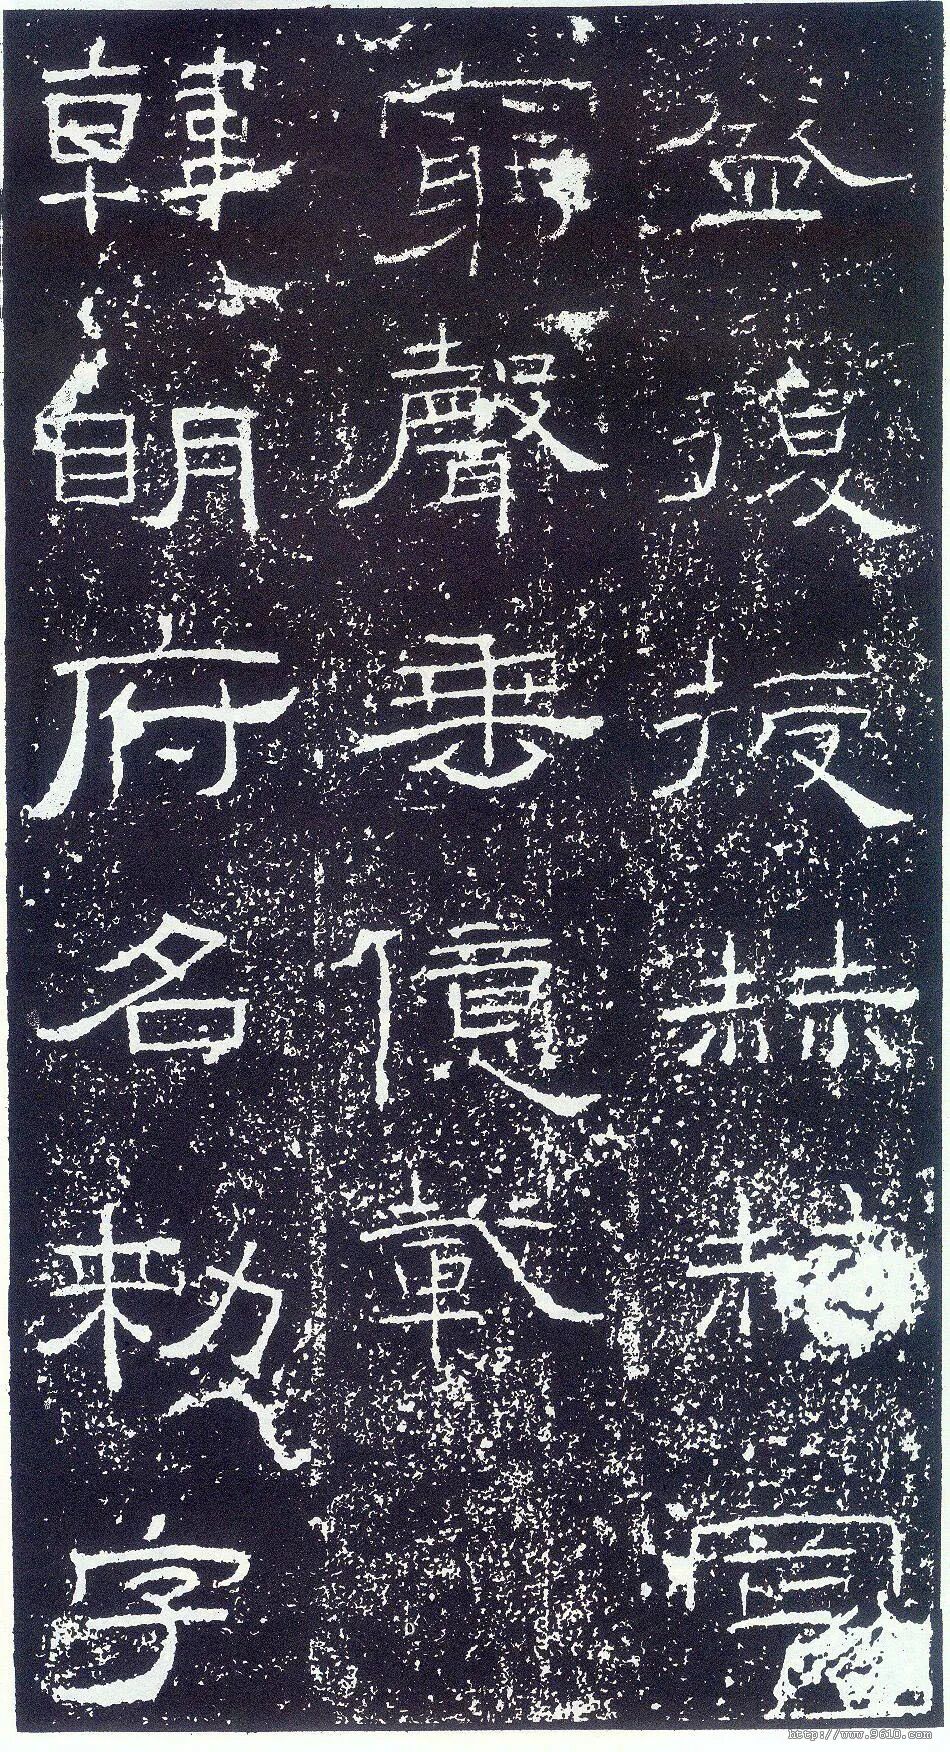 盛復授赫赫罔
窮聲垂億載
韓眀府名勑字
http://www.9610.com